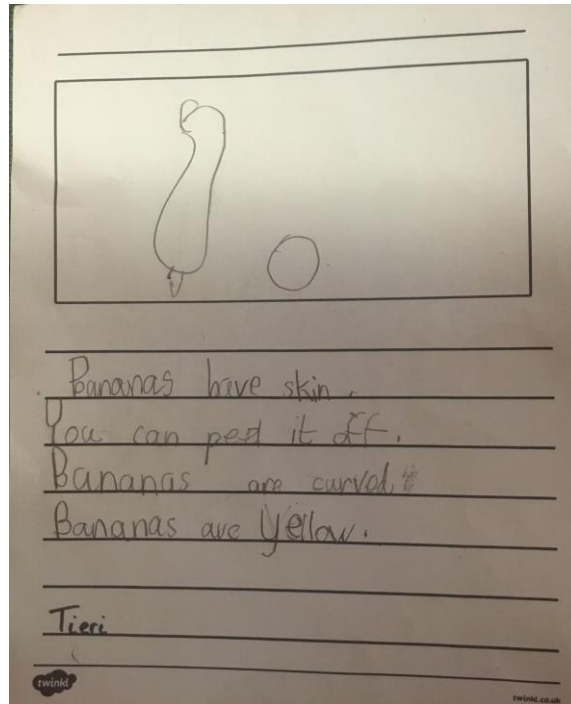 Bananas have skin.
You can peel it off.
Bananas are curved.
Bananas are yellow.
Tieri
twinkl
twinkl.co.uk